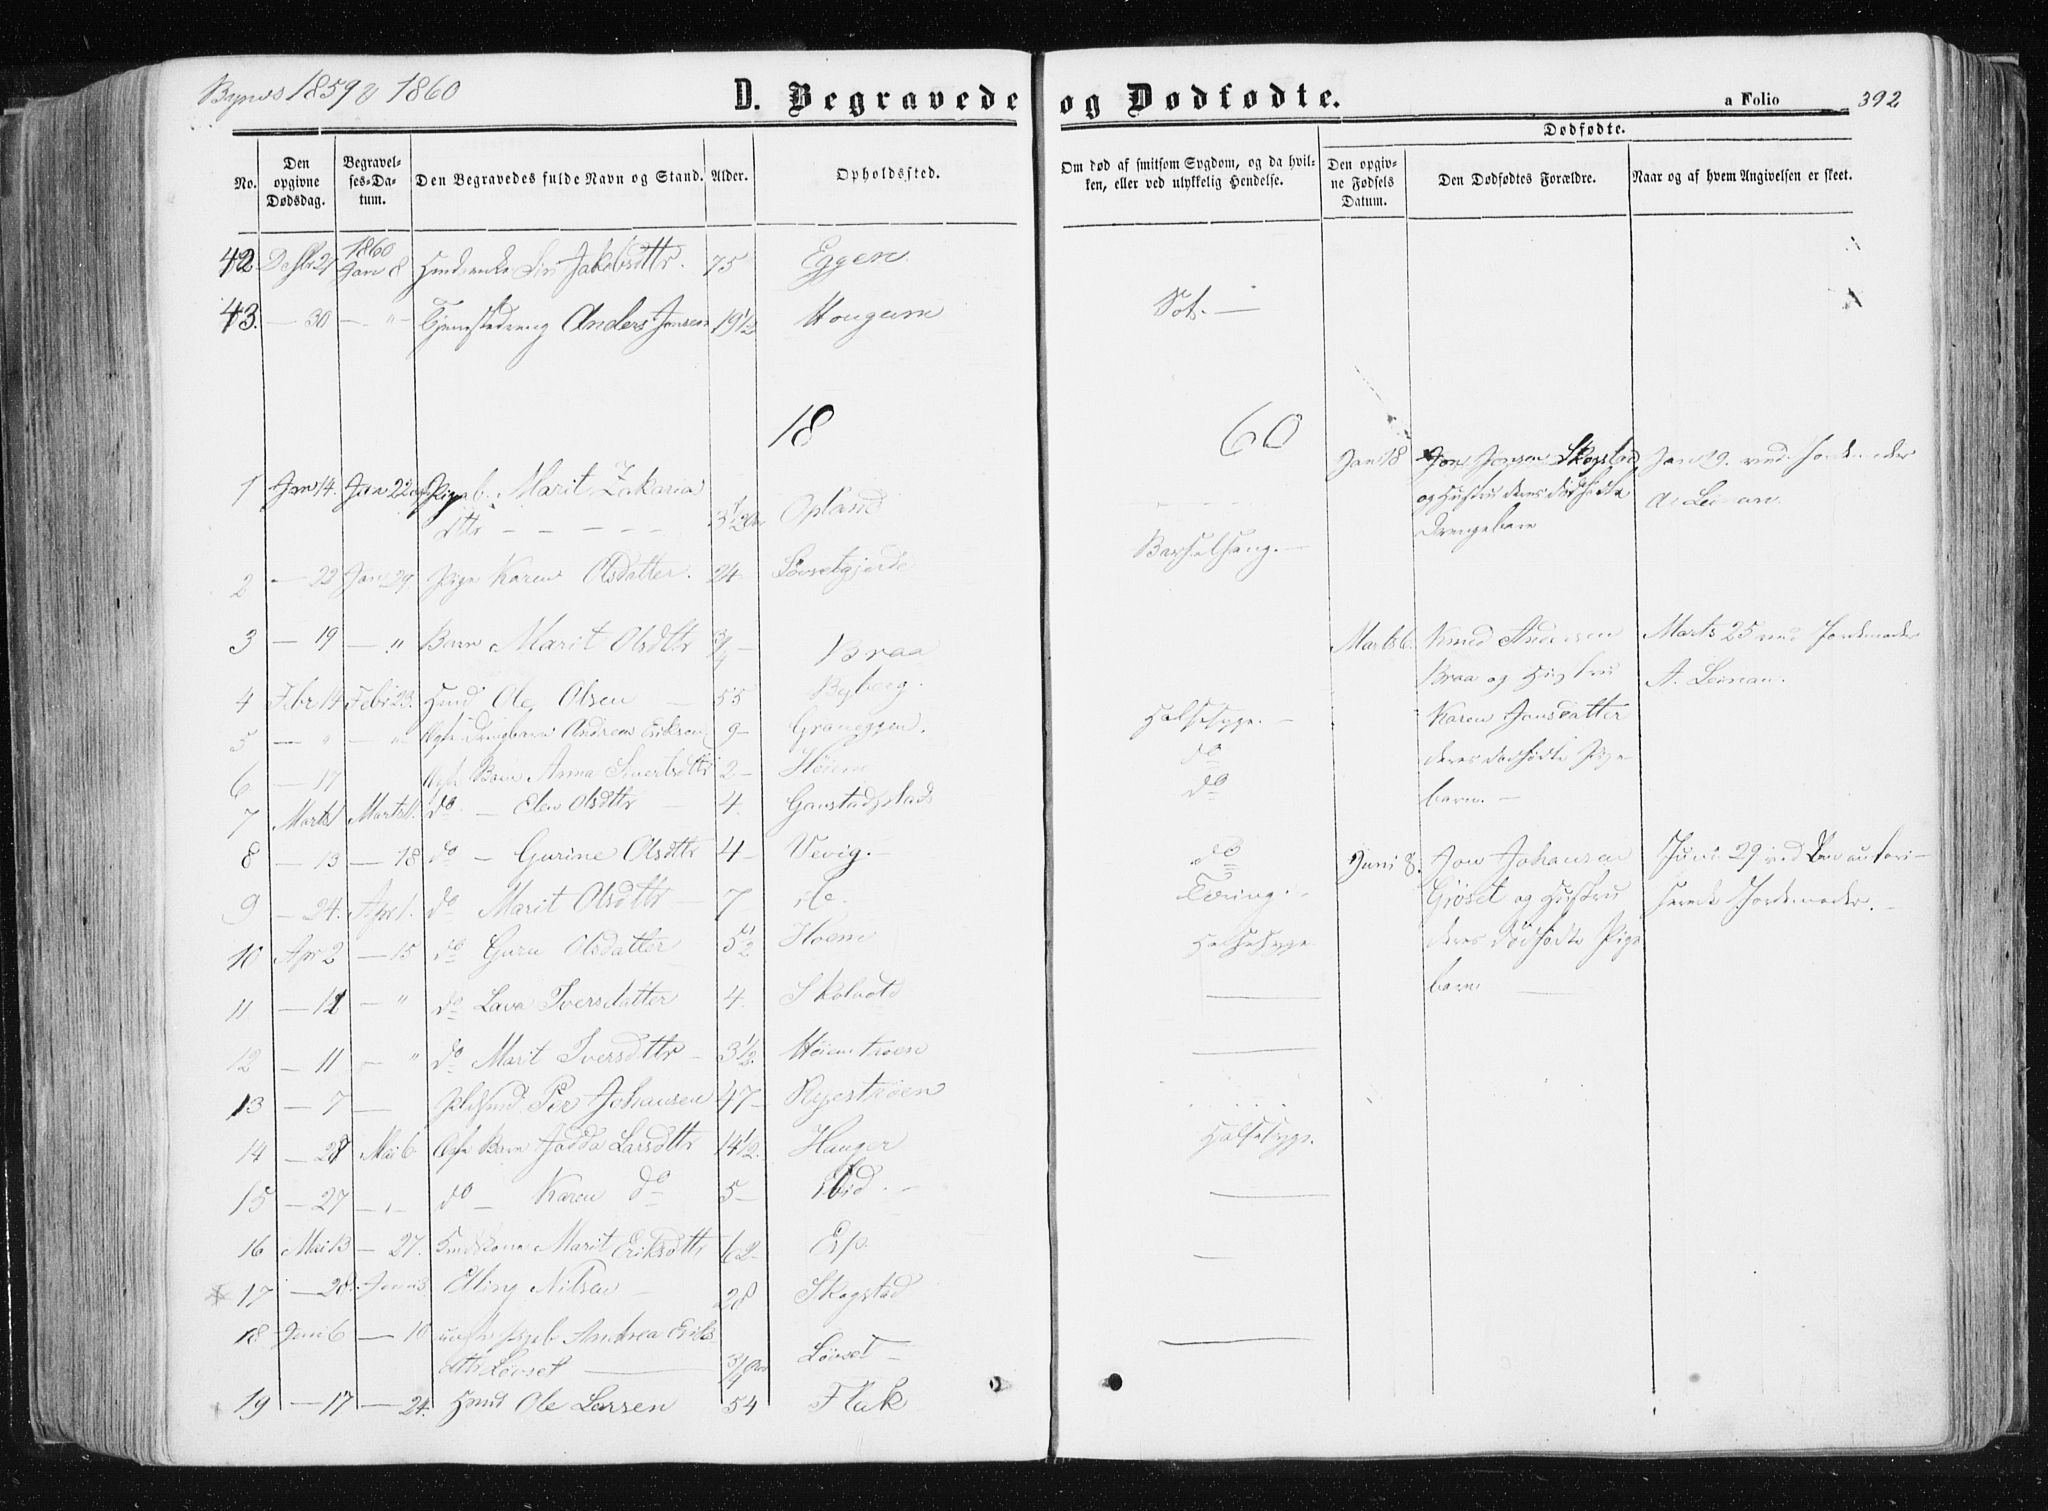 Bynes 1859 & 1860
D. Begravede og Dødfødte.
a Folio 392
No.
Den opgivne Dødsdag.
Begravelses-Datum.
Den Begravedes fulde Navn og Stand.
Alder.
Opholdssted.
Om død af smitsom Sygdom, og da hvilken, eller ved ulykkelig Hendelse.
Dødfødte.
Den opgivne Fødsels Datum.
Den Dødfødtes Forældre.
Naar og af hvem Angivelsen er skeet.
42 Decbr 21 1860 Jan 8 Siri Jakobsdttr. 75 Eggen.
43. — 30 — " — Tjenestedreng Anders Jonsen 19 1/2 Hougum Sot. —
18 60
1 Jan 14. Jan 22 Pigeb. Marit Zakaria
dttr — — — — 3 1/2 Opland
Jan 18 Jon Jonsen Skogstad Jan 19. ved Jordemoder
og Hustru deres dødfødte A. Leinan.
Drengebarn
2 — 22 Jan 29. Pige Karen Olsdatter. 24 Løvsetgjerde Barselseng. —
3 — 19 — " Barn Marit Olsdttr 3/4 — Braa
Marts 6. Knud Andersen Marts 25 ved Jordemoder
Braa og Hustru A. Leinan.
Karen Jonsdatter
deres dødfødte Pige-
barn. —
4 Febr 14 Febr 23. Ole Olsen — 55 Byberg.
5 — " — " Drengbarn Andreas Eriksen 9 — Graneggen. Halssyge. —
6 — 17 Barn Anna Sivertsdttr 2 — Høiem do
7 Marts 1 Marts 11. do — Elen Olsdttr — 4. Gaustadplads do
8 — 13 — 18 do — Gurine Olsdttr 4 — Vevig. — do
Juni 8. Jon Johansen Juni 29 ved den autori-
Gjøset og Hustru serede Jordemoder. —
deres dødfødte Pige
barn —
9 — 24. Apr 1. do Marit Olsdttr — 7 Ile. Tæring. —
10 Apr 2 — 15 do Guru Olsdatter 5 1/2 Hoem Halssyge
11 — 12 — " do Lava Iversdatter 4. Skolvold —
12 — 11 — " do Marit Iversdttr — 3 1/2. Høiemstrøen —
13 — 7 — Per Johansen 47 — Ryestrøen
14 — 28 Mai 6 Barn Jadda Larsdttr 14 1/2. Hanger Halssyge.
15 — 27 — " — do — Karen do 5 — Ibid. — —
16 Mai 13 — 27. Marit Eriksdttr 62 — Esp. —
17 — 28. Juni 3 Elling Nilsen — 28 Skogstad
18 Juni 6 — 10 Andrea Eriks
dttr Løvset — 3/4 Løvset — —
19 — 17 — 24. Ole Larsen 54 Flak